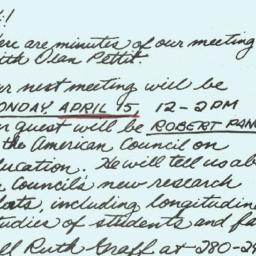 !
ere are minutes of our meeting
ith Dean Pettit.
ur next meeting will be
ONDAY, APRIL 15, 12-2PM
r guest will be ROBERT PAN
the American Council on
ducation. He will tell us ab
Council's new research
orts, including longitudin
tudies of students and fa
ll Ruth Graff at 280-24